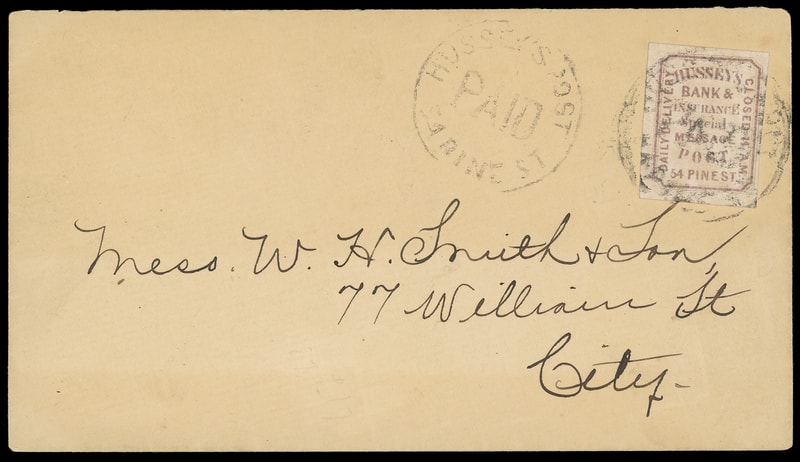 HUSSEY'S POST
PAID
54 PINE ST
HUSSEY'S
BANK &
INSURANCE
Special
MESSAGE
POST
54 PINE ST.
DAILY DELIVERY
CLOSED 11 A.M.
Mess. W. H. Smith & Son,
77 William St
City-